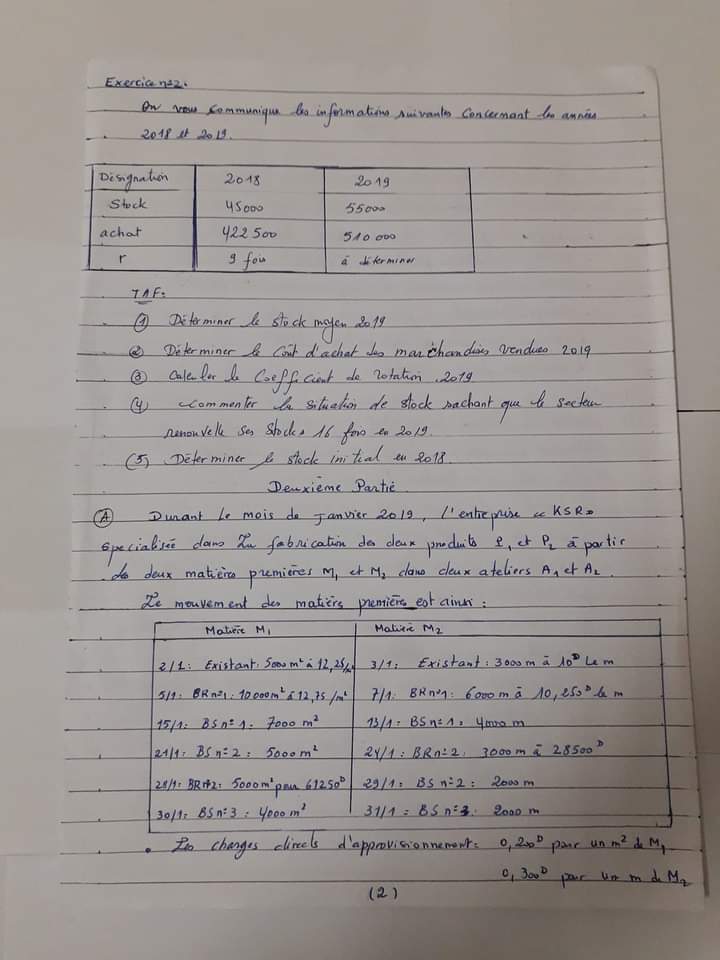 Exercice n°2:
On vous communique les informations suivantes concernant les années
2018 et 2019.
Désignation 2018 2019
Stock 45000 55000
achat 422 500 510 000
r 9 fois à déterminer
TAF:
① Déterminer le stock moyen 2019
② Déterminer le coût d'achat des marchandises vendues 2019
③ Calculer le Coefficient de rotation 2019
④ Commenter la situation de stock sachant que le secteur
renouvelle ses stocks 16 fois en 2019.
⑤ Déterminer le stock initial en 2018.
Deuxième Partie
Ⓐ Durant le mois de janvier 2019, l'entreprise « KSR»
specialisée dans la fabrication des deux produits P1 et P2 à partir
des deux matières premières M1 et M2 dans deux ateliers A1 et A2.
Le mouvement des matières premières est ainsi :
Matière M1 Matière M2
2/1: Existant: 5000 m² à 12,25/m² 3/1: Existant: 3000 m à 10D le m
5/1: BR n°1: 10000 m² à 12,75 /m² 7/1: BR n°1: 6000 m à 10,250D le m
15/1: BS n°1: 7000 m² 13/1: BS n°1: 4000 m
21/1: BS n°2: 5000 m² 24/1: BR n°2: 3000 m à 28500D
28/1: BR n°2: 5000 m² pour 61250D 29/1: BS n°2: 2000 m
30/1: BS n°3: 4000 m² 31/1: BS n°3: 2000 m
• Les charges directs d'approvisionnement: 0,200D pour un m² de M1
0,300D pour un m de M2
(2)